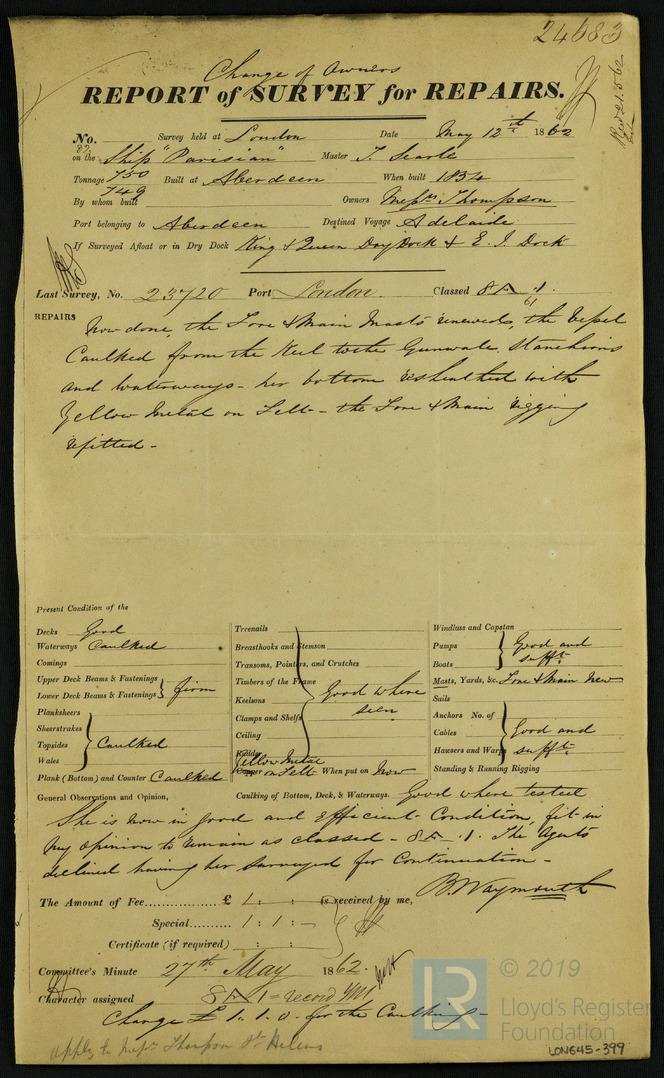 24683
Change of Owners
REPORT of SURVEY for REPAIRS.
Recd 21.5.62
No. Survey held at London Date May 12th 1862
on the Ship "Parisian" Master J. Searle
Tonnage 750 Built at Aberdeen When built 1854
749
By whom built Owners Messrs Thompson
Port belonging to Aberdeen Destined Voyage Adelaide
If Surveyed Afloat or in Dry Dock King & Queen Dry Dock & E. I. Dock
Last Survey, No. 23720 Port London. Classed 8 A .1.
61
REPAIRS
Now done, the Fore & Main Masts renewed, the Vessel
Caulked from the Keel to the Gunwale, Stanchions
and Waterways - her bottom resheathed with
Yellow Metal on Felt - the Fore & Main rigging
refitted -
Present Condition of the
Decks Good
Waterways Caulked
Comings
Upper Deck Beams & Fastenings
Lower Deck Beams & Fastenings } firm
Planksheers
Sheerstrakes
Topsides } Caulked
Wales
Plank (Bottom) and Counter Caulked
Treenails
Breasthooks and Stemson
Transoms, Pointers, and Crutches
Timbers of the Frame
Keelsons } Good where seen
Clamps and Shelfs
Ceiling
Rudder
Yellow Metal
Copper on Felt When put on Now
Windlass and Capstan
Pumps } Good and
Boats sufft.
Masts, Yards, &c. Fore & Main New
Sails
Anchors No. of
Cables } Good and
Hausers and Warps sufft.
Standing & Running Rigging
General Observations and Opinion, Caulking of Bottom, Deck, & Waterways. Good where tested
She is now in good and efficient Condition, fit in
my opinion to remain as classed - 8 A .1. The Agents
declined having her surveyed for Continuation -
B. Waymouth
The Amount of Fee........... £ 1 : : is received by me,
Special........... 1 : 1 : -
Certificate (if required) : :
Committee's Minute 27th May 1862.
Character assigned 8 A 1 = record YM
Change £ 1. 1. 0 for the Caulking -
apply to Messrs Thompson St Helens
LR © 2019
Lloyd's Register
Foundation
LON645-399